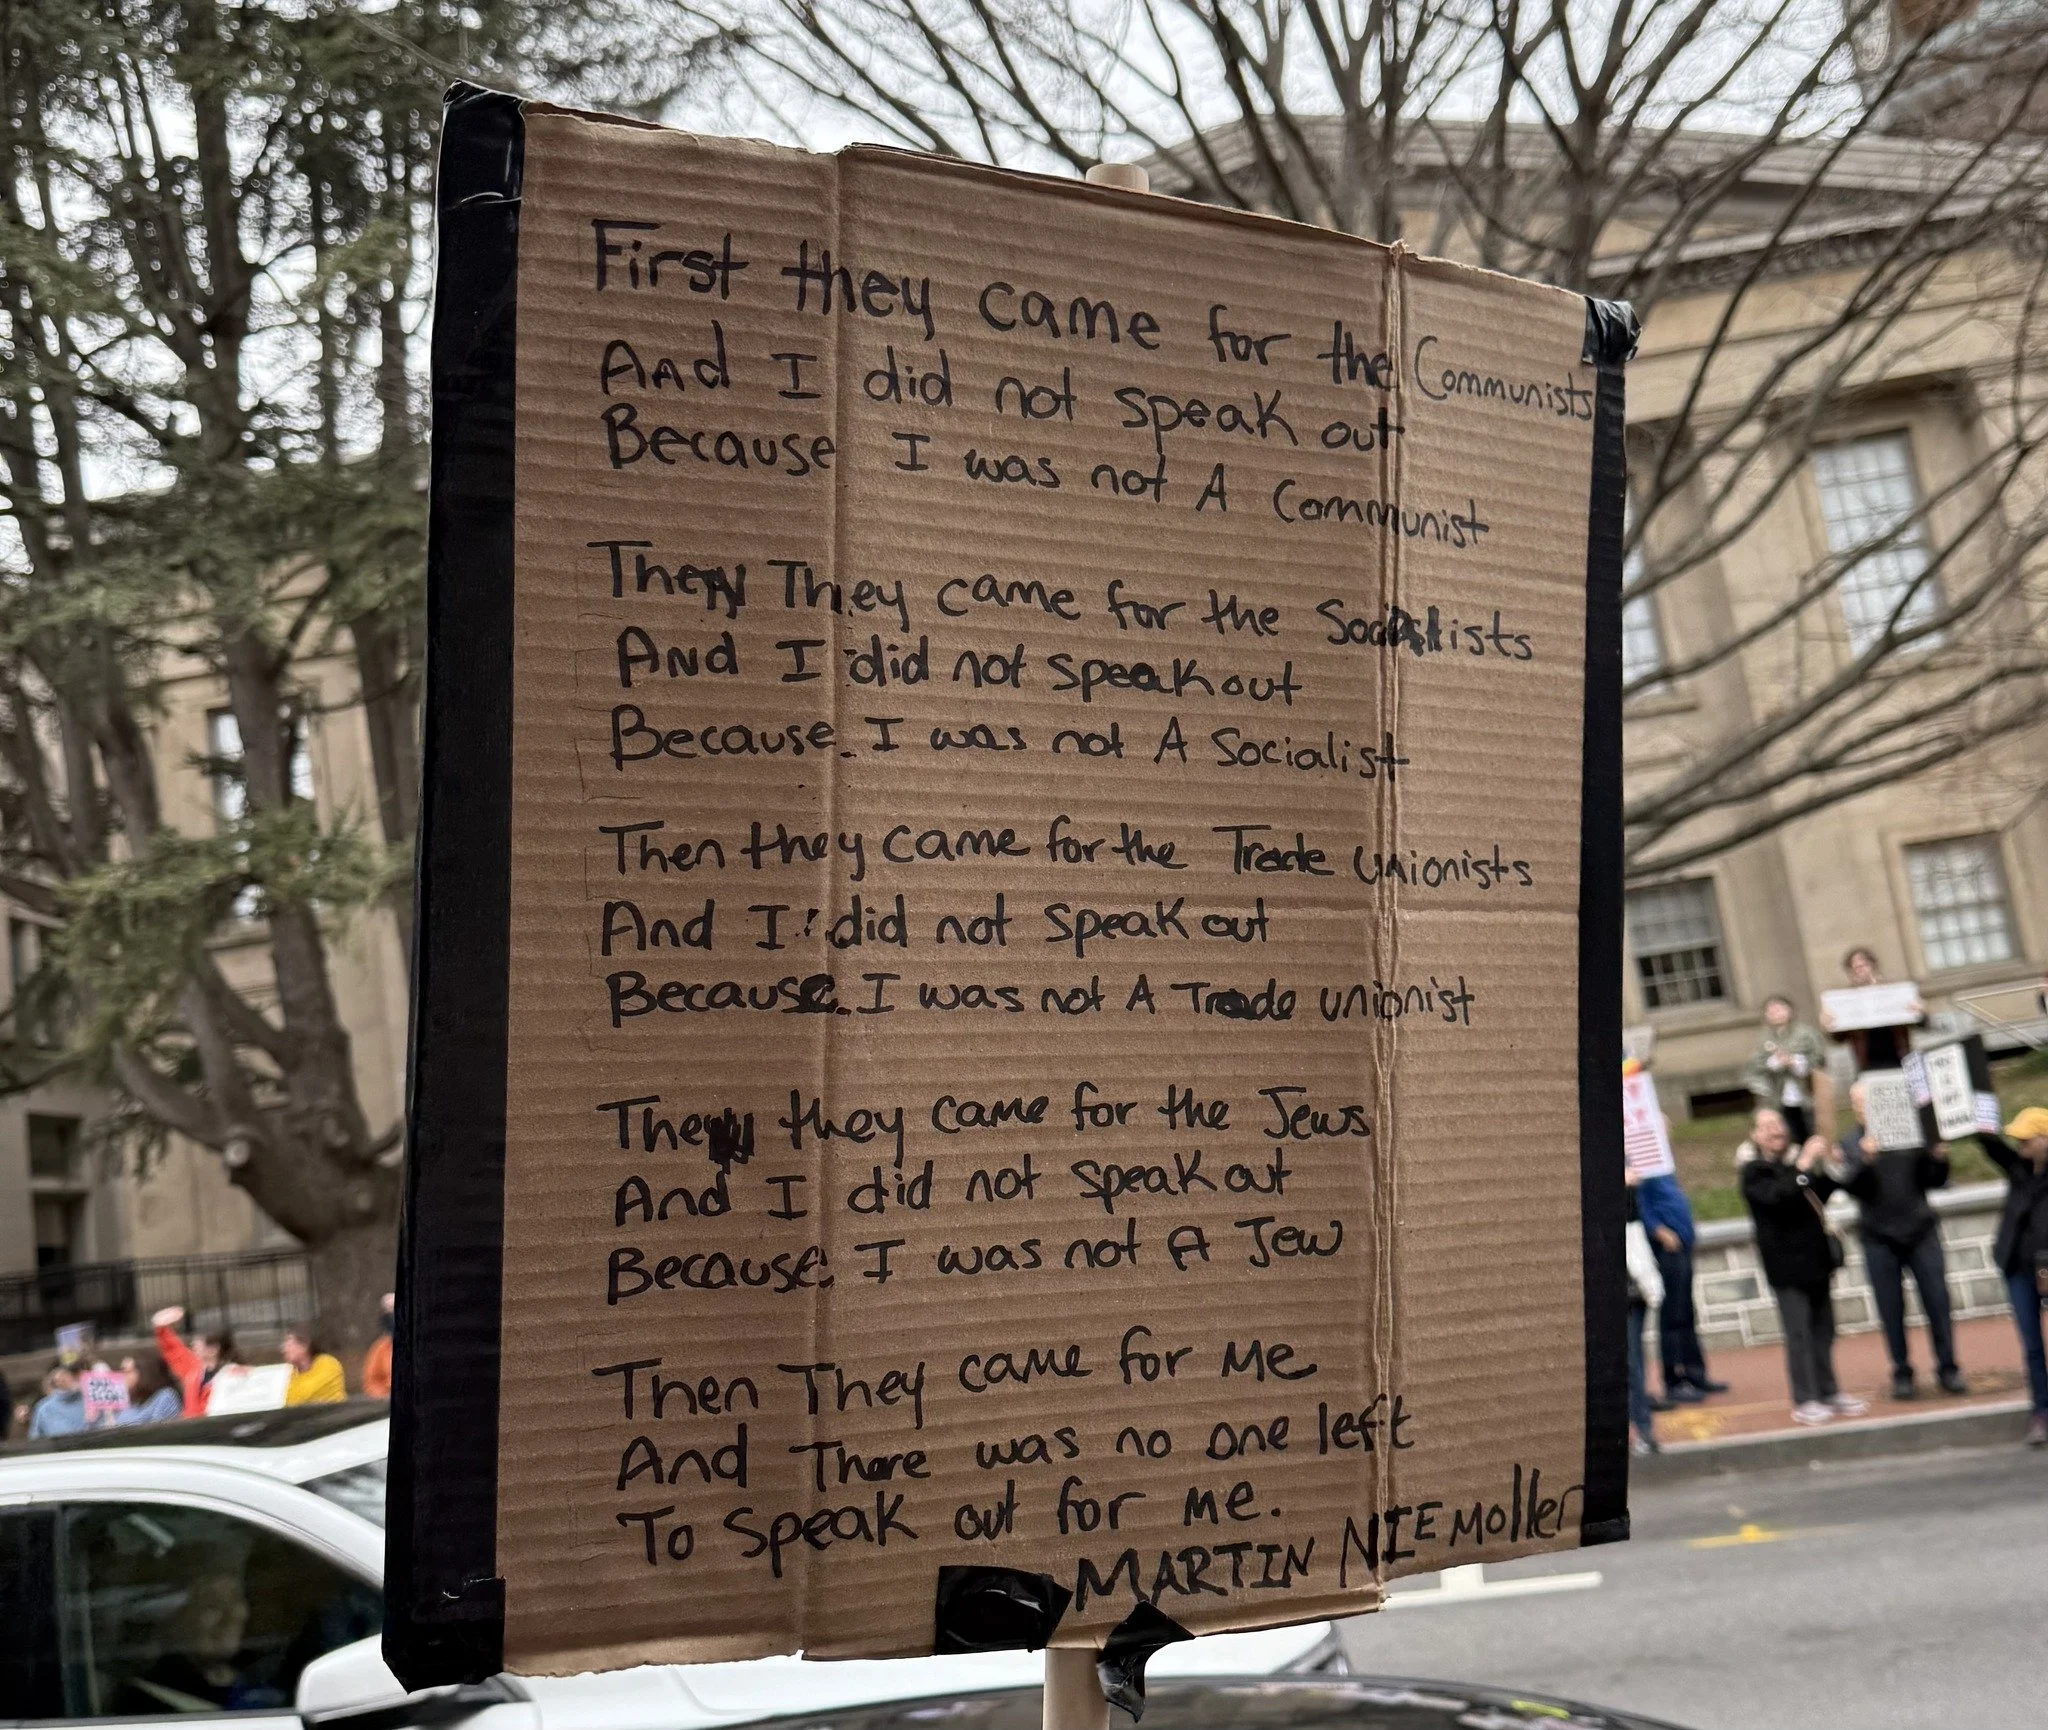 First they came for the Communists
And I did not speak out
Because I was not A Communist
Then They came for the Socialists
And I did not speak out
Because I was not A Socialist
Then they came for the Trade unionists
And I did not speak out
Because I was not A Trade unionist
Then they came for the Jews
And I did not speak out
Because I was not A Jew
Then They came for Me
And There was no one left
To speak out for me.
MARTIN NIEMOller